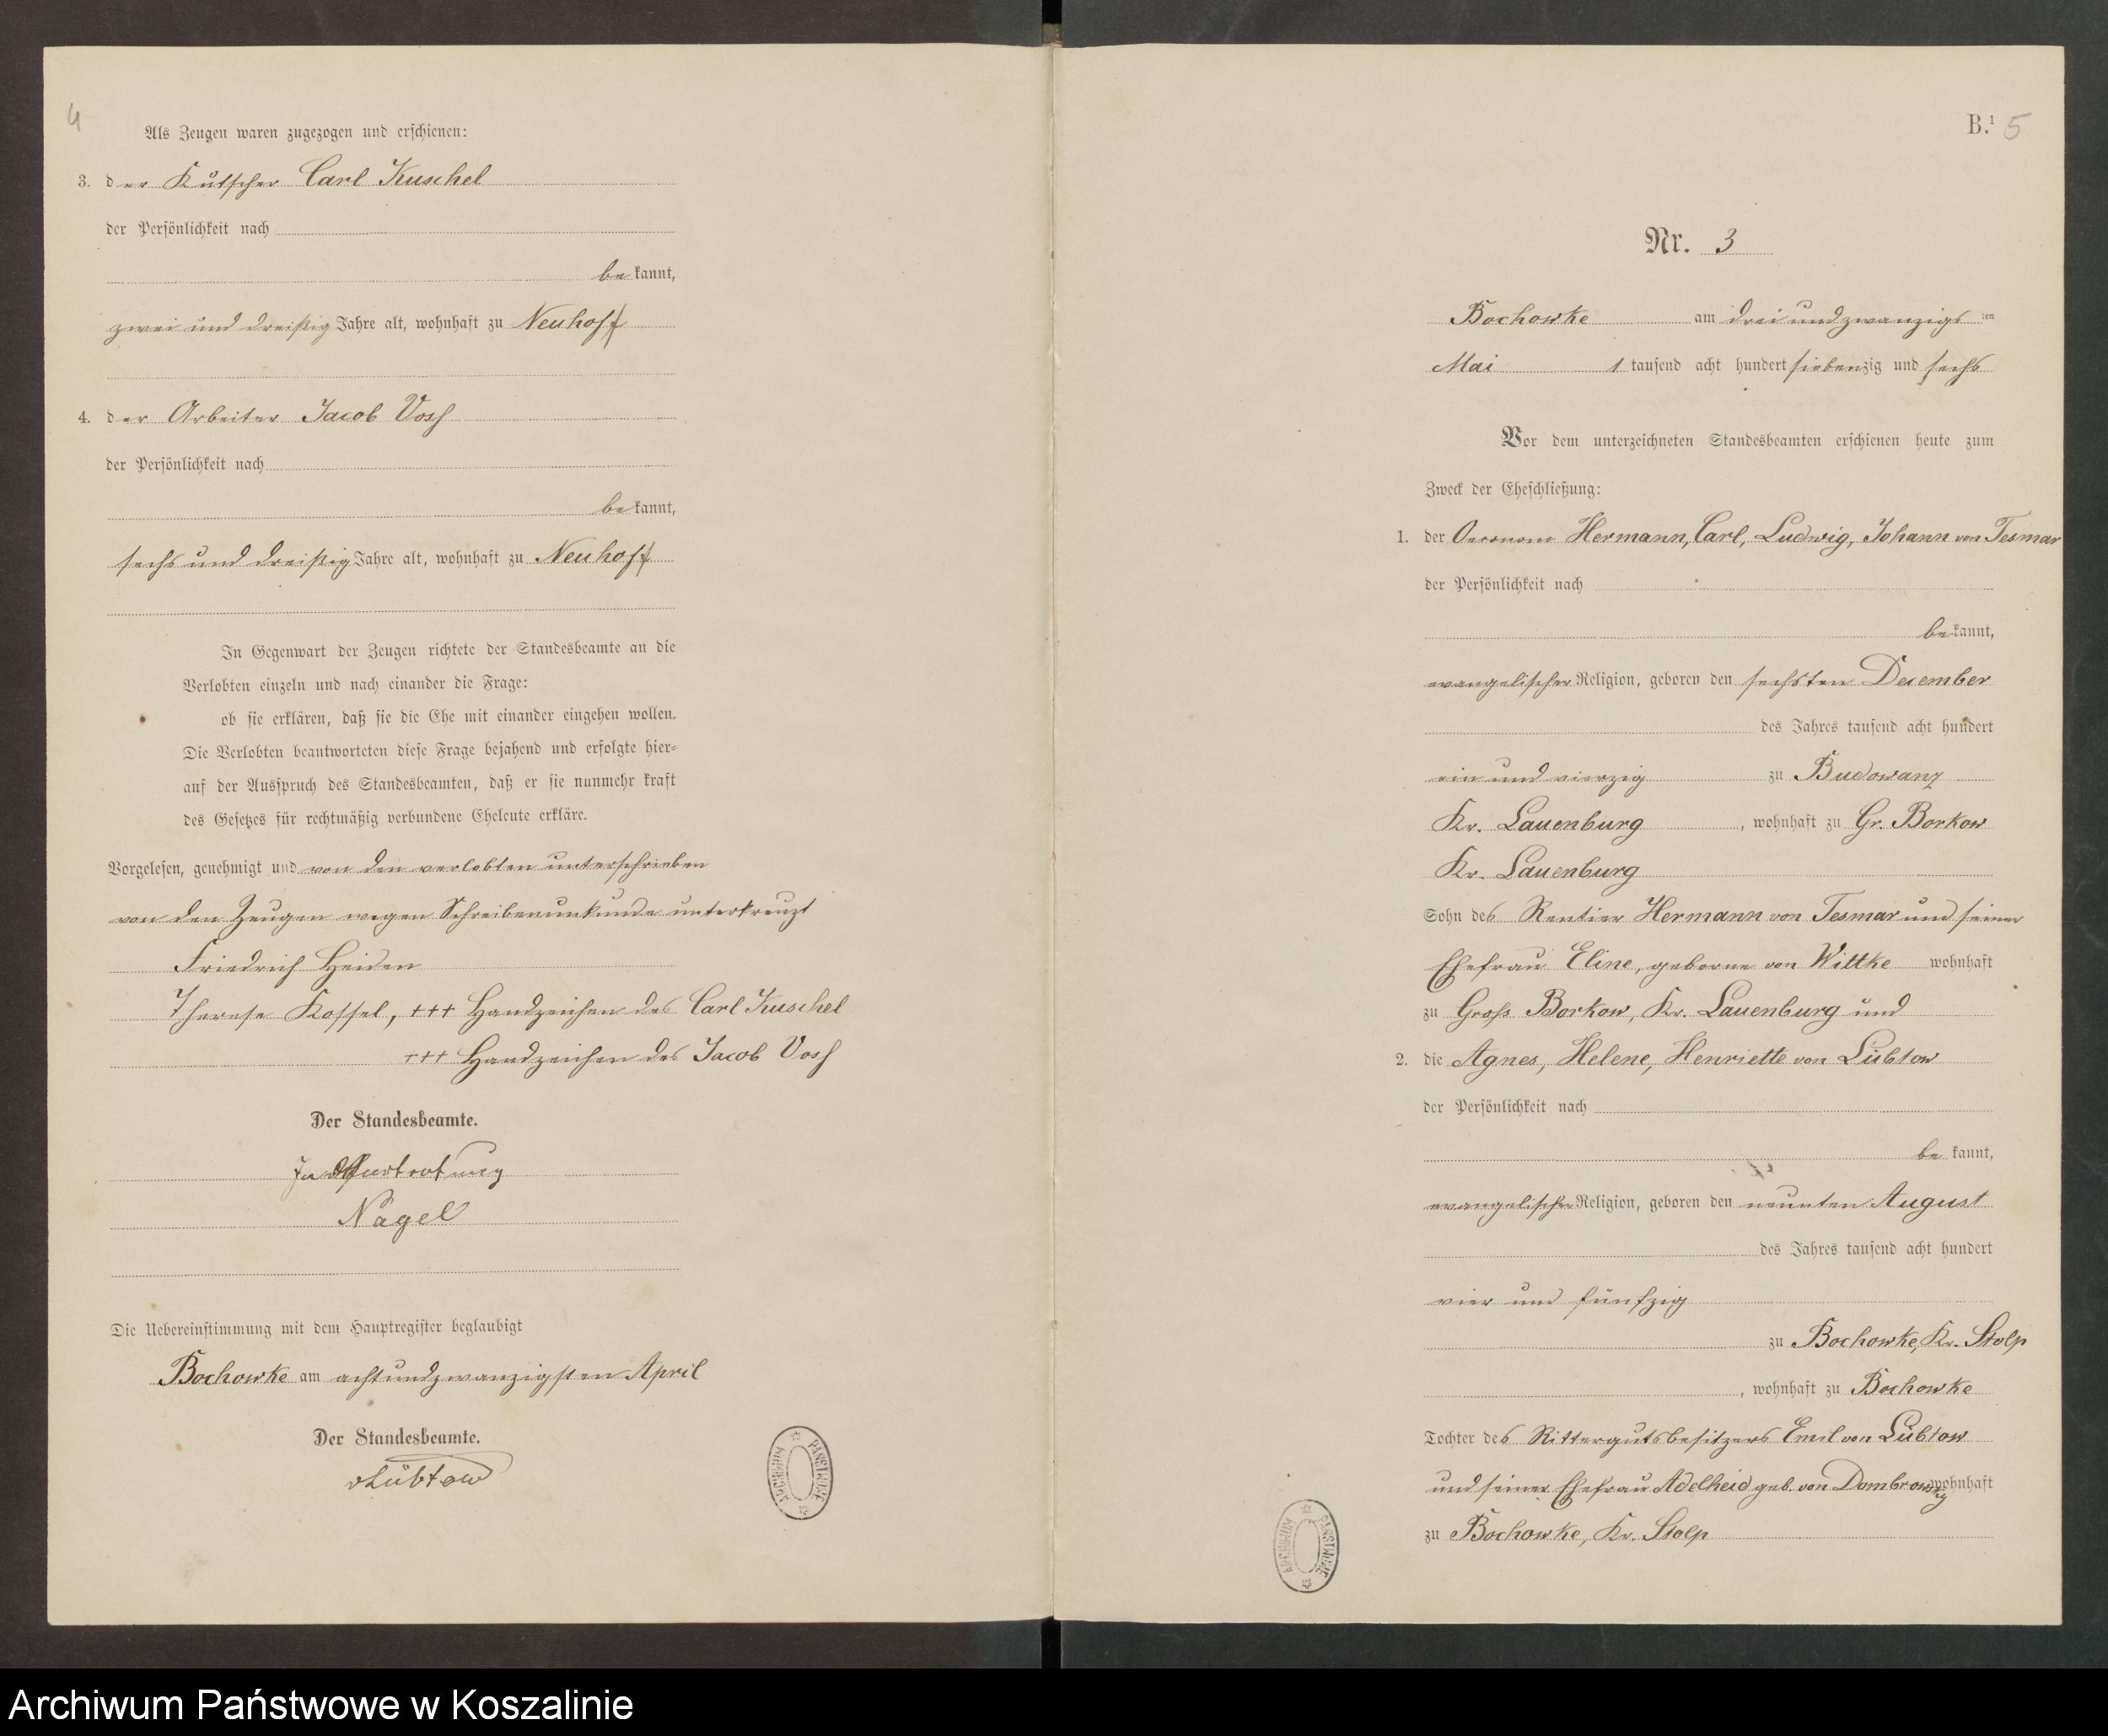 4
Als Zeugen waren zugezogen und erschienen:
3. der Kutscher Carl Kuschel
der Persönlichkeit nach
bekannt,
zwei und dreißig Jahre alt, wohnhaft zu Neuhoff
4. der Arbeiter Jacob Voss
der Persönlichkeit nach
bekannt,
sechs und dreißig Jahre alt, wohnhaft zu Neuhoff
In Gegenwart der Zeugen richtete der Standesbeamte an die
Verlobten einzeln und nach einander die Frage:
ob sie erklären, daß sie die Ehe mit einander eingehen wollen.
Die Verlobten beantworteten diese Frage bejahend und erfolgte hier-
auf der Ausspruch des Standesbeamten, daß er sie nunmehr kraft
des Gesetzes für rechtmäßig verbundene Eheleute erkläre.
Vorgelesen, genehmigt und von den verlobten unterschrieben
von den Zeugen wegen Schreibenunkunde unterkreuzt
Friedrich Heiden
Therese Kossel, +++ Handzeichen des Carl Kuschel
+++ Handzeichen des Jacob Voss
Der Standesbeamte.
In Vertretung
Nagel
Die Uebereinstimmung mit dem Hauptregister beglaubigt
Bochowke am achtundzwanzigsten April
Der Standesbeamte.
vLübtow
ARCHIWUM PAŃSTWOWE
B.¹ 5
Nr. 3
Bochowke am drei und zwanzigsten
Mai 1 tausend acht hundert siebenzig und sechs
Vor dem unterzeichneten Standesbeamten erschienen heute zum
Zweck der Eheschließung:
1. der Oeconom Hermann, Carl, Ludwig, Johann von Tesmar
der Persönlichkeit nach
bekannt,
evangelischer Religion, geboren den sechsten December
des Jahres tausend acht hundert
ein und vierzig zu Budowanz
Kr. Lauenburg, wohnhaft zu Gr. Borkow
Kr. Lauenburg
Sohn des Rentier Hermann von Tesmar und seiner
Ehefrau Eline, geborne von Wittke wohnhaft
zu Gross Borkow, Kr. Lauenburg und
2. die Agnes, Helene, Henriette von Lübtow
der Persönlichkeit nach
bekannt,
evangelischer Religion, geboren den neunten August
des Jahres tausend acht hundert
vier und fünfzig
zu Bochowke, Kr. Stolp
, wohnhaft zu Bochowke
Tochter des Rittergutsbesitzers Emil von Lübtow
und seiner Ehefrau Adelheid geb. von Dombrowsky wohnhaft
zu Bochowke, Kr. Stolp
ARCHIWUM PAŃSTWOWE
Archiwum Państwowe w Koszalinie